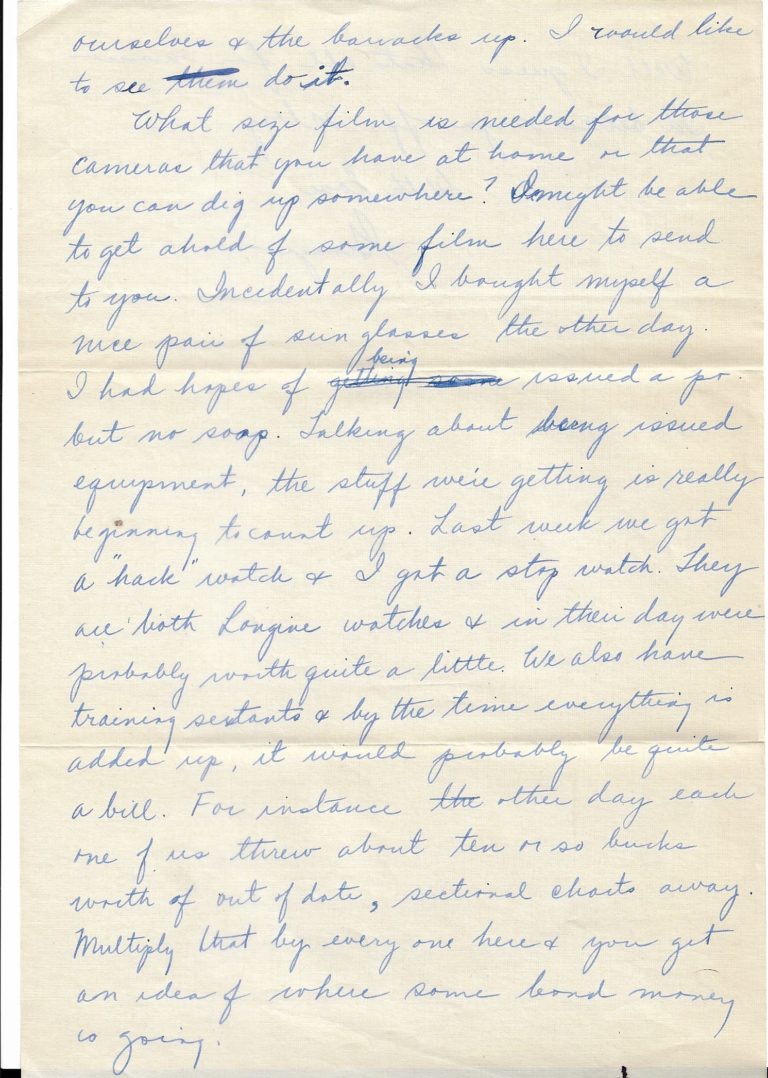 ourselves & the barracks up. I would like
to see them do it.
What size film is needed for those
cameras that you have at home or that
you can dig up somewhere? I might be able
to get ahold of some film here to send
to you. Incidentally I bought myself a
nice pair of sun glasses the other day.
I had hopes of getting some being issued a pr.
but no soap. Talking about being issued
equipment, the stuff we're getting is really
beginning to count up. Last week we got
a "hack" watch & I got a stop watch. They
are both Longine watches & in their day were
probably worth quite a little. We also have
training sextants & by the time everything is
added up, it would probably be quite
a bill. For instance the other day each
one of us threw about ten or so bucks
worth of out of date, sectional charts away.
Multiply that by every one here & you get
an idea of where some bond money
is going.